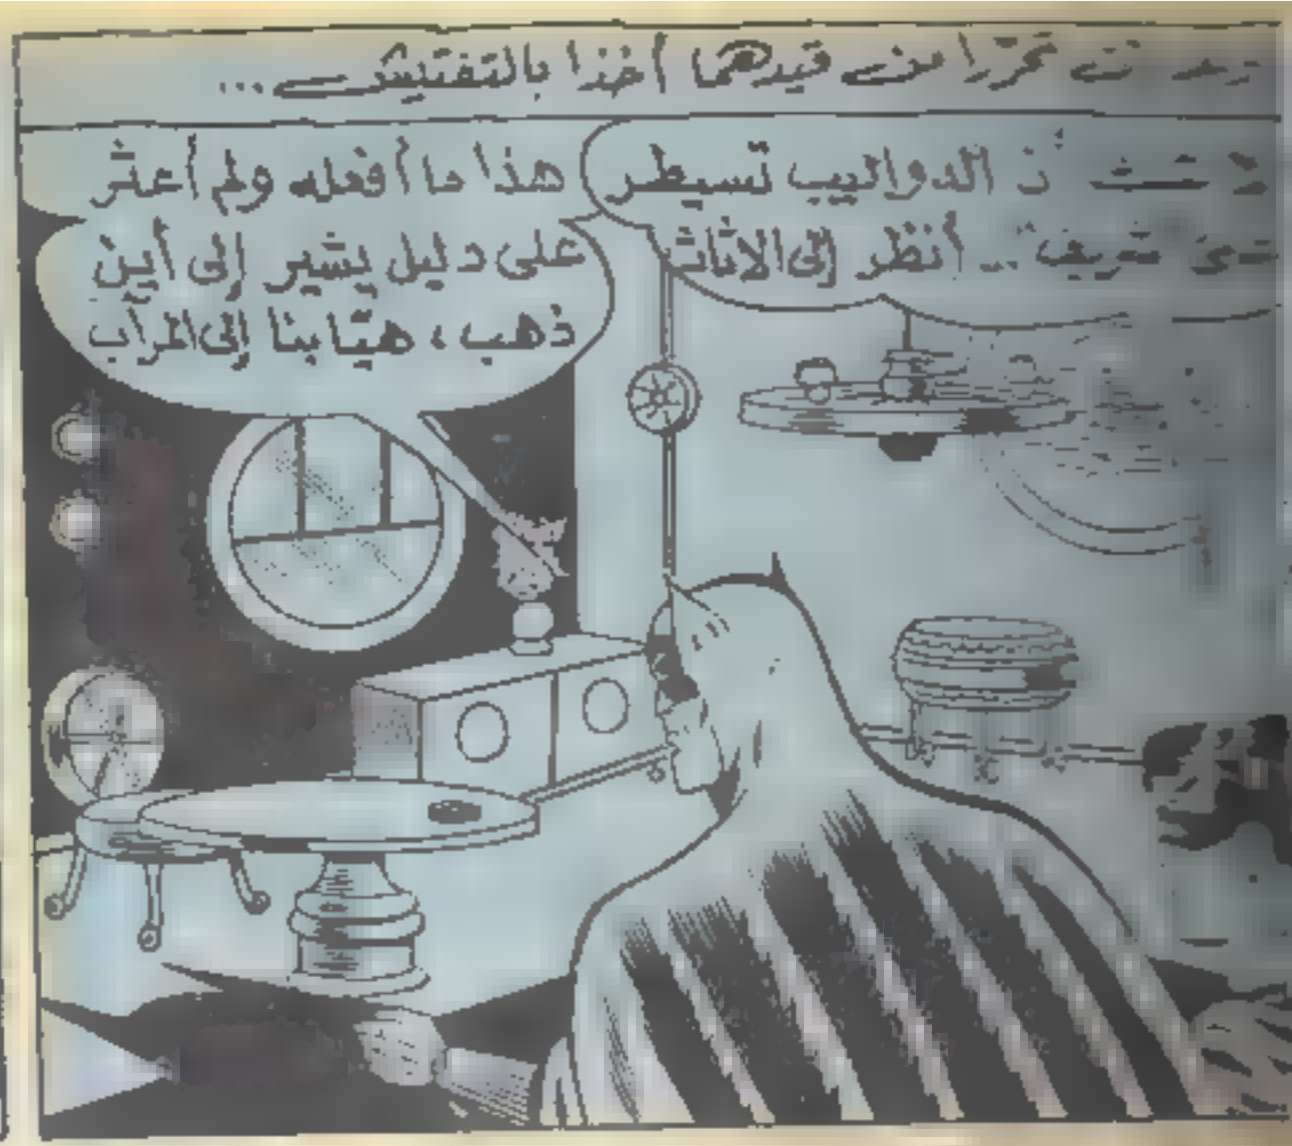 تحرّرا من قيدهما أخذا بالتفتيش...
الدواليب تسيطر
أنظر إلى الاثاث
هذا ما أفعله ولم أعثر
على دليل يشير إلى أين
ذهب، هيّا بنا إلى المرآب